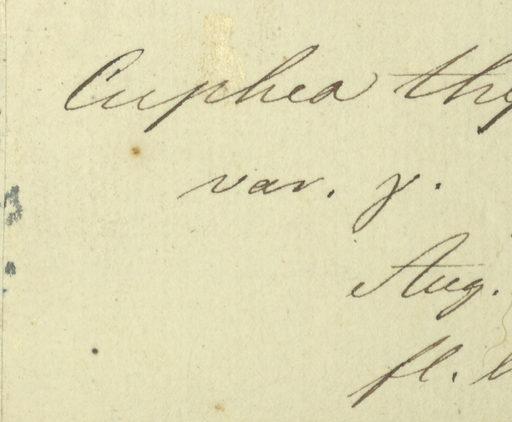 Cuphea thy
var. γ.
Aug.
fl.